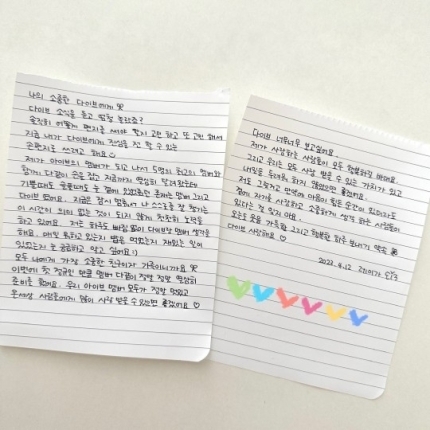 나의 소중한 다이브에게
다이브 소식을 듣고 많이 놀랐죠?
솔직히 어떻게 편지를 써야 할지 고민 하고 또 고민 해서
지금 내가 다이브에게 진심을 전 할 수 있는
손편지를 쓰려고 해요
제가 아이브의 멤버가 되고 나서 5명의 최고의 멤버와
함께 다같이 손을 잡고 지금까지 열심히 달려왔는데
기쁠때도 슬플때도 늘 곁에 있어줬던 존재는 멤버 그리고
다이브 였어요. 지금은 잠시 멈춰서 나 스스로를 잘 챙기는
이 시간이 의미 없는 것이 되지 않게 천천히 노력을
하고 있어요. 저는 하루도 빠짐없이 다이브랑 멤버 생각을
해요. 매일 뭐하고 있는지 밥은 먹었는지 재밌는 일이
있었는지 늘 궁금하고 알고 싶어요 :)
모두 나에게 가장 소중한 친구이자 가족이니까요
이번에 첫 정규인 만큼 멤버 다같이 정말 정말 열심히
준비를 했어요. 우리 아이브 멤버 모두가 정말 멋있고
온세상 사람들에게 많이 사랑 받을 수 있으면 좋겠어요 ♡
다이브 너무너무 보고싶어요.
제가 사랑하는 사람들이 모두 행복하길 바래요.
그리고 우리는 모두 사랑 받을 수 있는 가치가 있고
내일을 두려워 하지 않았으면 좋겠어요.
저도 그렇고 만약에 마음이 힘든 순간이 있더라도
곁에 자기를 사랑하고 소중하게 생각 하는 사람들이
있다는 걸 잊지 마요.
오늘도 웃음 가득한 그리고 행복한 하루 보내기 약속
다이브 사랑해요 ♡
2023. 4. 12 레이가